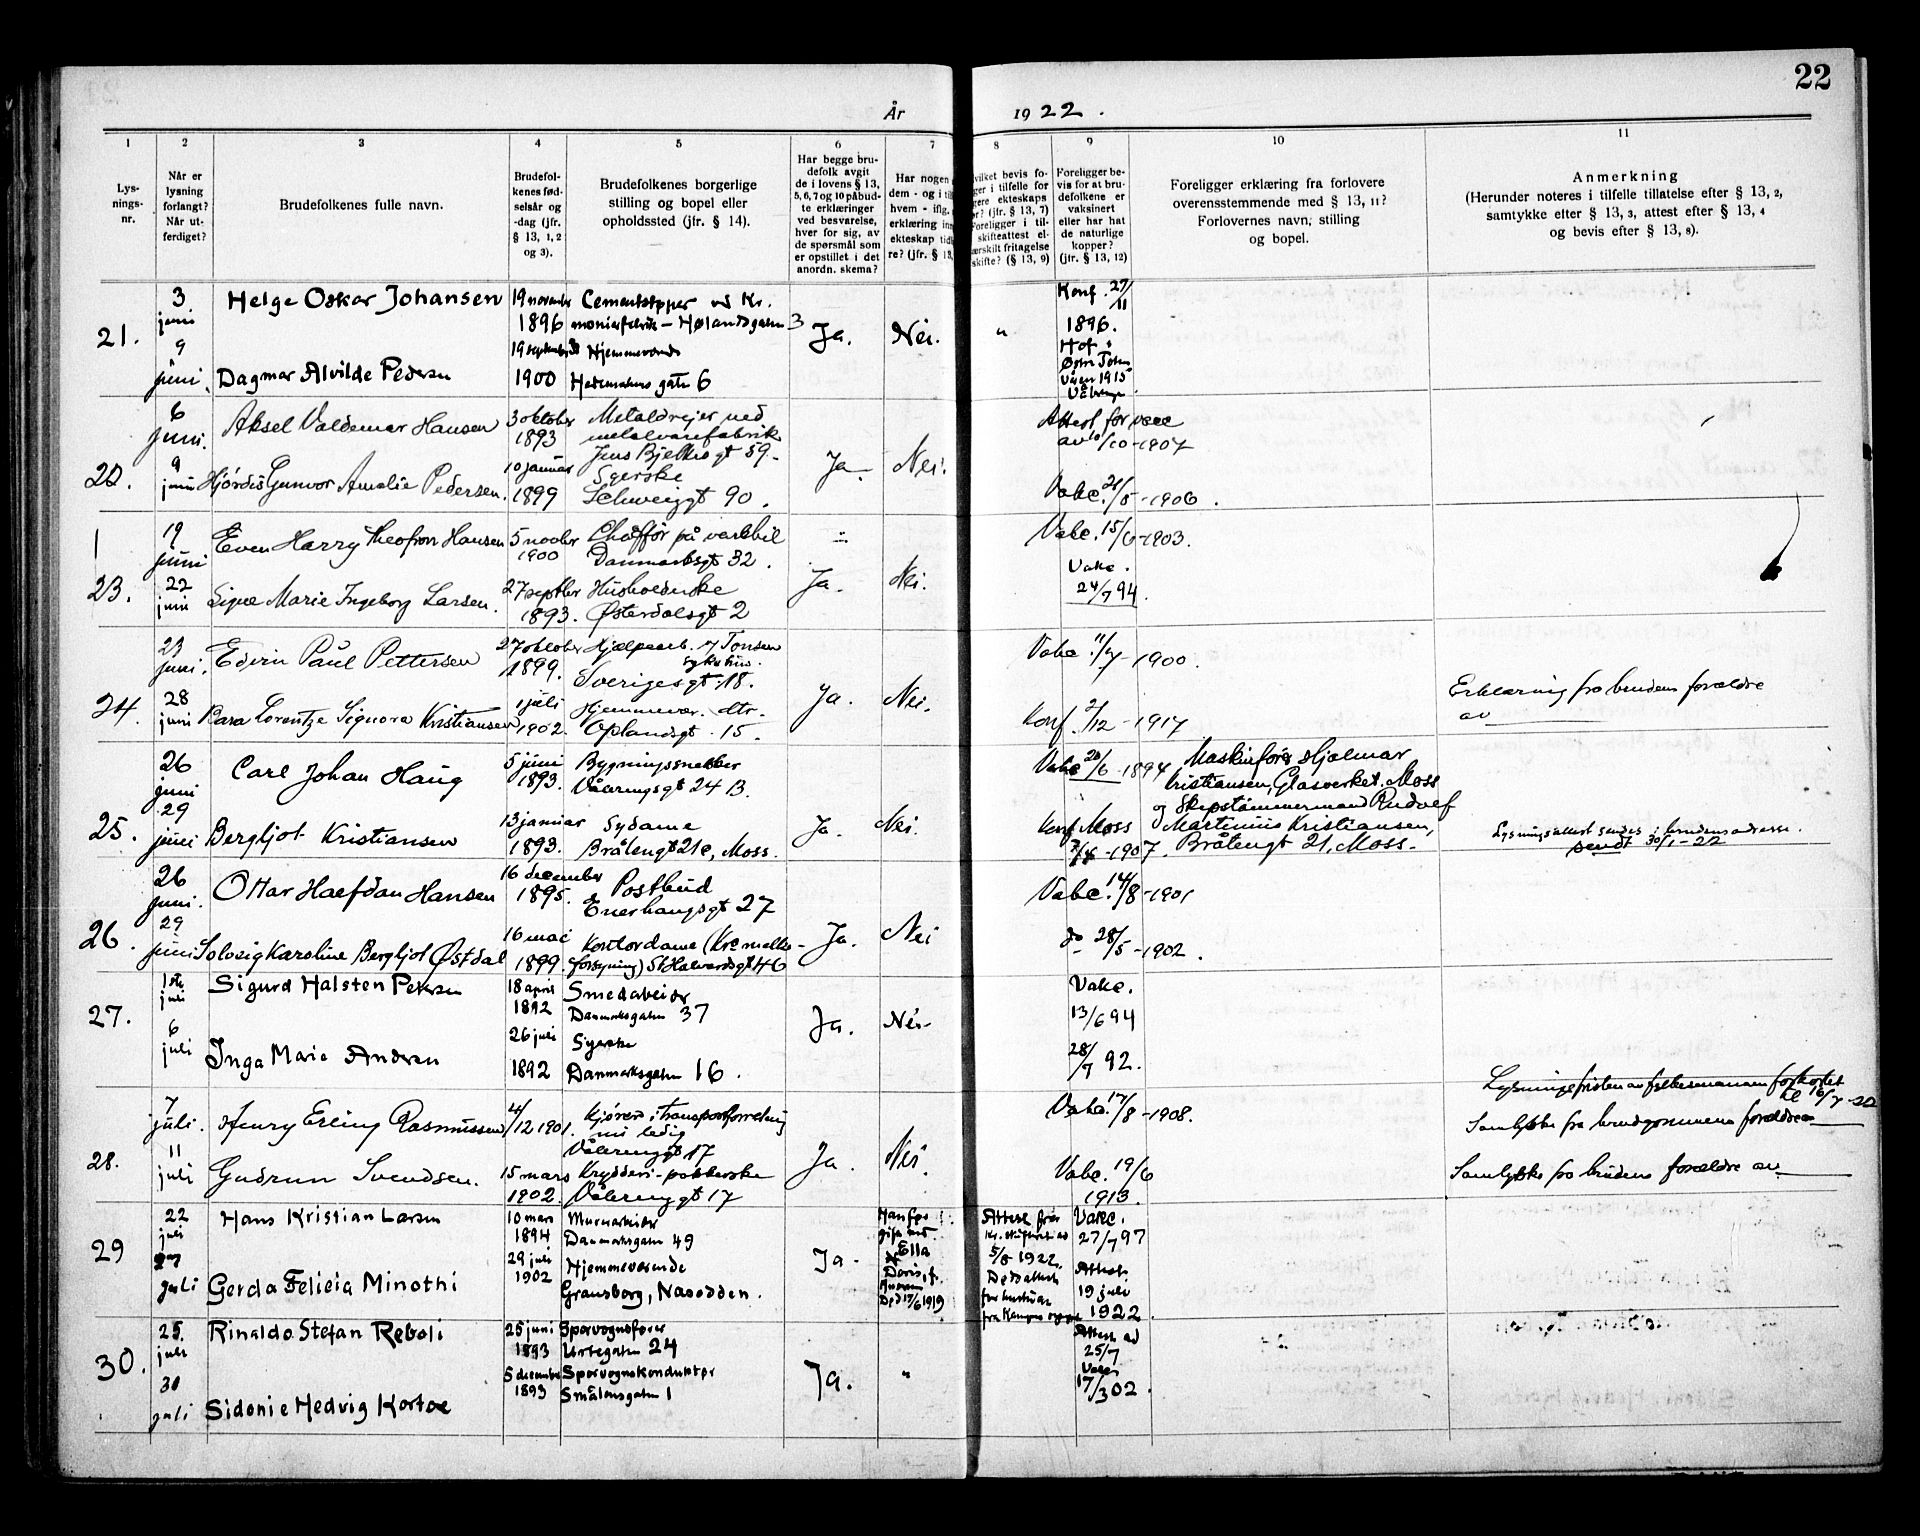 22
År 1922.
1
Lysnings-
nr.
2
Når er
lysning
forlangt?
Når ut-
ferdiget?
3
Brudefolkenes fulle navn.
4
Brudefol-
kenes fød-
selsår og
-dag (jfr.
§ 13, 1, 2
og 3).
5
Brudefolkenes borgerlige
stilling og bopel eller
opholdssted (jfr. § 14).
6
Har begge bru-
defolk avgit
de i lovens § 13,
5, 6, 7 og 10 påbud-
te erklæringer
ved besvarelse,
hver for sig, av
de spørsmål som
er opstillet i det
anordn. skema?
7
Har nogen
dem - og i
hvem - iflg.
erklæring
ekteskap tid
re? (jfr. § 13,
8
vilket bevis fo-
ger i tilfelle for
gere ekteskaps
r? (jfr. § 13, 7)
Foreligger i til-
skifteattest el-
ærskilt fritagelse
skifte? (§ 13, 9)
9
Foreligger be-
vis for at bru-
defolkene er
vaksinert
eller har hat
de naturlige
kopper?
(jfr. § 13, 12)
10
Foreligger erklæring fra forlovere
overensstemmende med § 13, 11?
Forlovernes navn, stilling
og bopel.
11
Anmerkning
(Herunder noteres i tilfelle tillatelse efter § 13, 2,
samtykke efter § 13, 3, attest efter § 13, 4
og bevis efter § 13, 8).
21.
3
juni
9
juni
Helge Oskar Johansen
Dagmar Alvilde Pedersen
19 november
1896
19 september
1900
Cementstøper ved Kr.
monierfabrik - Hølandsgaten 3
Hjemmeværende
Hedemarkens gaten 6
Ja.
Nei.
"
Konf. 27/11
1896.
Hof i
Østre Toten
1915
Vålerengen
22.
6
juni.
9
juni
Aksel Valdemar Hansen
Hjørdis Gunvor Amalie Pedersen.
3 oktober
1893
10 januar
1899
Metaldreier ved
metalvarefabrik
Jens Bjelkes gt 59.
Syerske
Schweiggt 90.
Ja
Nei.
Attest for vacc
av 10/10-1907
Vakc. 21/5-1906.
23.
19
juni
22
juni
Even Harry Theofron Hansen
Signe Marie Ingeborg Larsen.
5 novbr
1900
27 septbr
1893.
Chaffør på varebil
Danmarksgt 32.
Husholderske
Østerdalsgt 2
Ja.
Nei.
Vakc. 15/6-1903.
Vakc.
24/7 94.
24.
23
juni.
28
juni
Edvin Paul Pettersen
Kara Lorentze Signora Kristiansen
27 oktober
1899.
1 juli
1902.
Hjælpearb. v/ Tonsen
sykehus.
Sverigesgt. 18.
Hjemmevær. dtr.
Oplandsgt. 15.
Ja.
Nei.
Vakc. 11/7-1900.
Konf. 2/12-1917
Erklæring fra brudens forældre
av
25.
26
juni
29
juni
Carl Johan Haug
Bergljot Kristiansen
5 juni
1893.
13 januar
1893.
Bygningssnekker
Våleringsgt 24 B.
Sydame
Bråtengt 21c, Moss.
Ja.
Nei.
Vakc 20/6-1894
Konf Moss
1907.
Maskinfører Hjalmar
Kristiansen, Glasverket, Moss
og Skipstømmermand Rudolf
Martinius Kristiansen,
Bråtengt 21, Moss.
Lysningsattest sendes i brudens adresse.
sendt 30/1-22
26.
26
juni.
29
juni
Ottar Halfdan Hansen
Solveig Karoline Bergljot Østdal
16 december
1895.
16 mai
1899.
Postbud
Enerhaugsgt 27
Kontordame (Kra melke-
forsyning) St Halvardsgt 46
Ja.
Nei
Vakc. 14/8-1901
do 28/5-1902.
27.
1ste
juli
6
juli
Sigurd Halsten Petersen
Inga Marie Andresen
18 april
1892
26 juli
1892
Smedarbeider
Danmarksgaten 37
Syerske
Danmarksgaten 16.
Ja.
Nei-
Vakc.
13/6 94
28/7 92.
28.
7
juli.
11
juli
Henry Erling Rasmussen
Gudrun Svendsen.
4/12 1901.
15 mars
1902.
Kjører i transportforretning
nu ledig
Vålerenggt 17
Krydderi-pakkerske
Vålerenggt 17
Ja.
Nei.
Vakc. 17/8-1908.
Vakc. 19/6
1913.
Lysningsfristen av fylkesmannen forkortet
til 16/7-22
Samtykke fra brudgommens forældre
Samtykke fra brudens forældre av
29
22
juli
27
juli
Hans Kristian Larsen
Gerda Felicia Minothi
10 mars
1894
29 juli
1902
Murarbeider
Danmarksgaten 49
Hjemmeværende
Gransborg, Nesodden.
Ja.
Han før
gift med
Ella
Doris, f.
Død 17/6 1919
Attest fra
Kr. skifterett av
5/8 1922.
Dødsattest
for hustru
Vakc.
27/7 97
Attest.
19 juli
1922.
30.
25.
juli
30
juli
Rinaldo Stefan Reboli
Sidonie Hedvig Kortoe
25 juni
1893
5 december
1893
Sporvognsfører
Urtegaten 24
Sporvognskonduktør
Smålensgaten 1
Ja.
"
Attest av
25/7
Vakc
17/3 02.